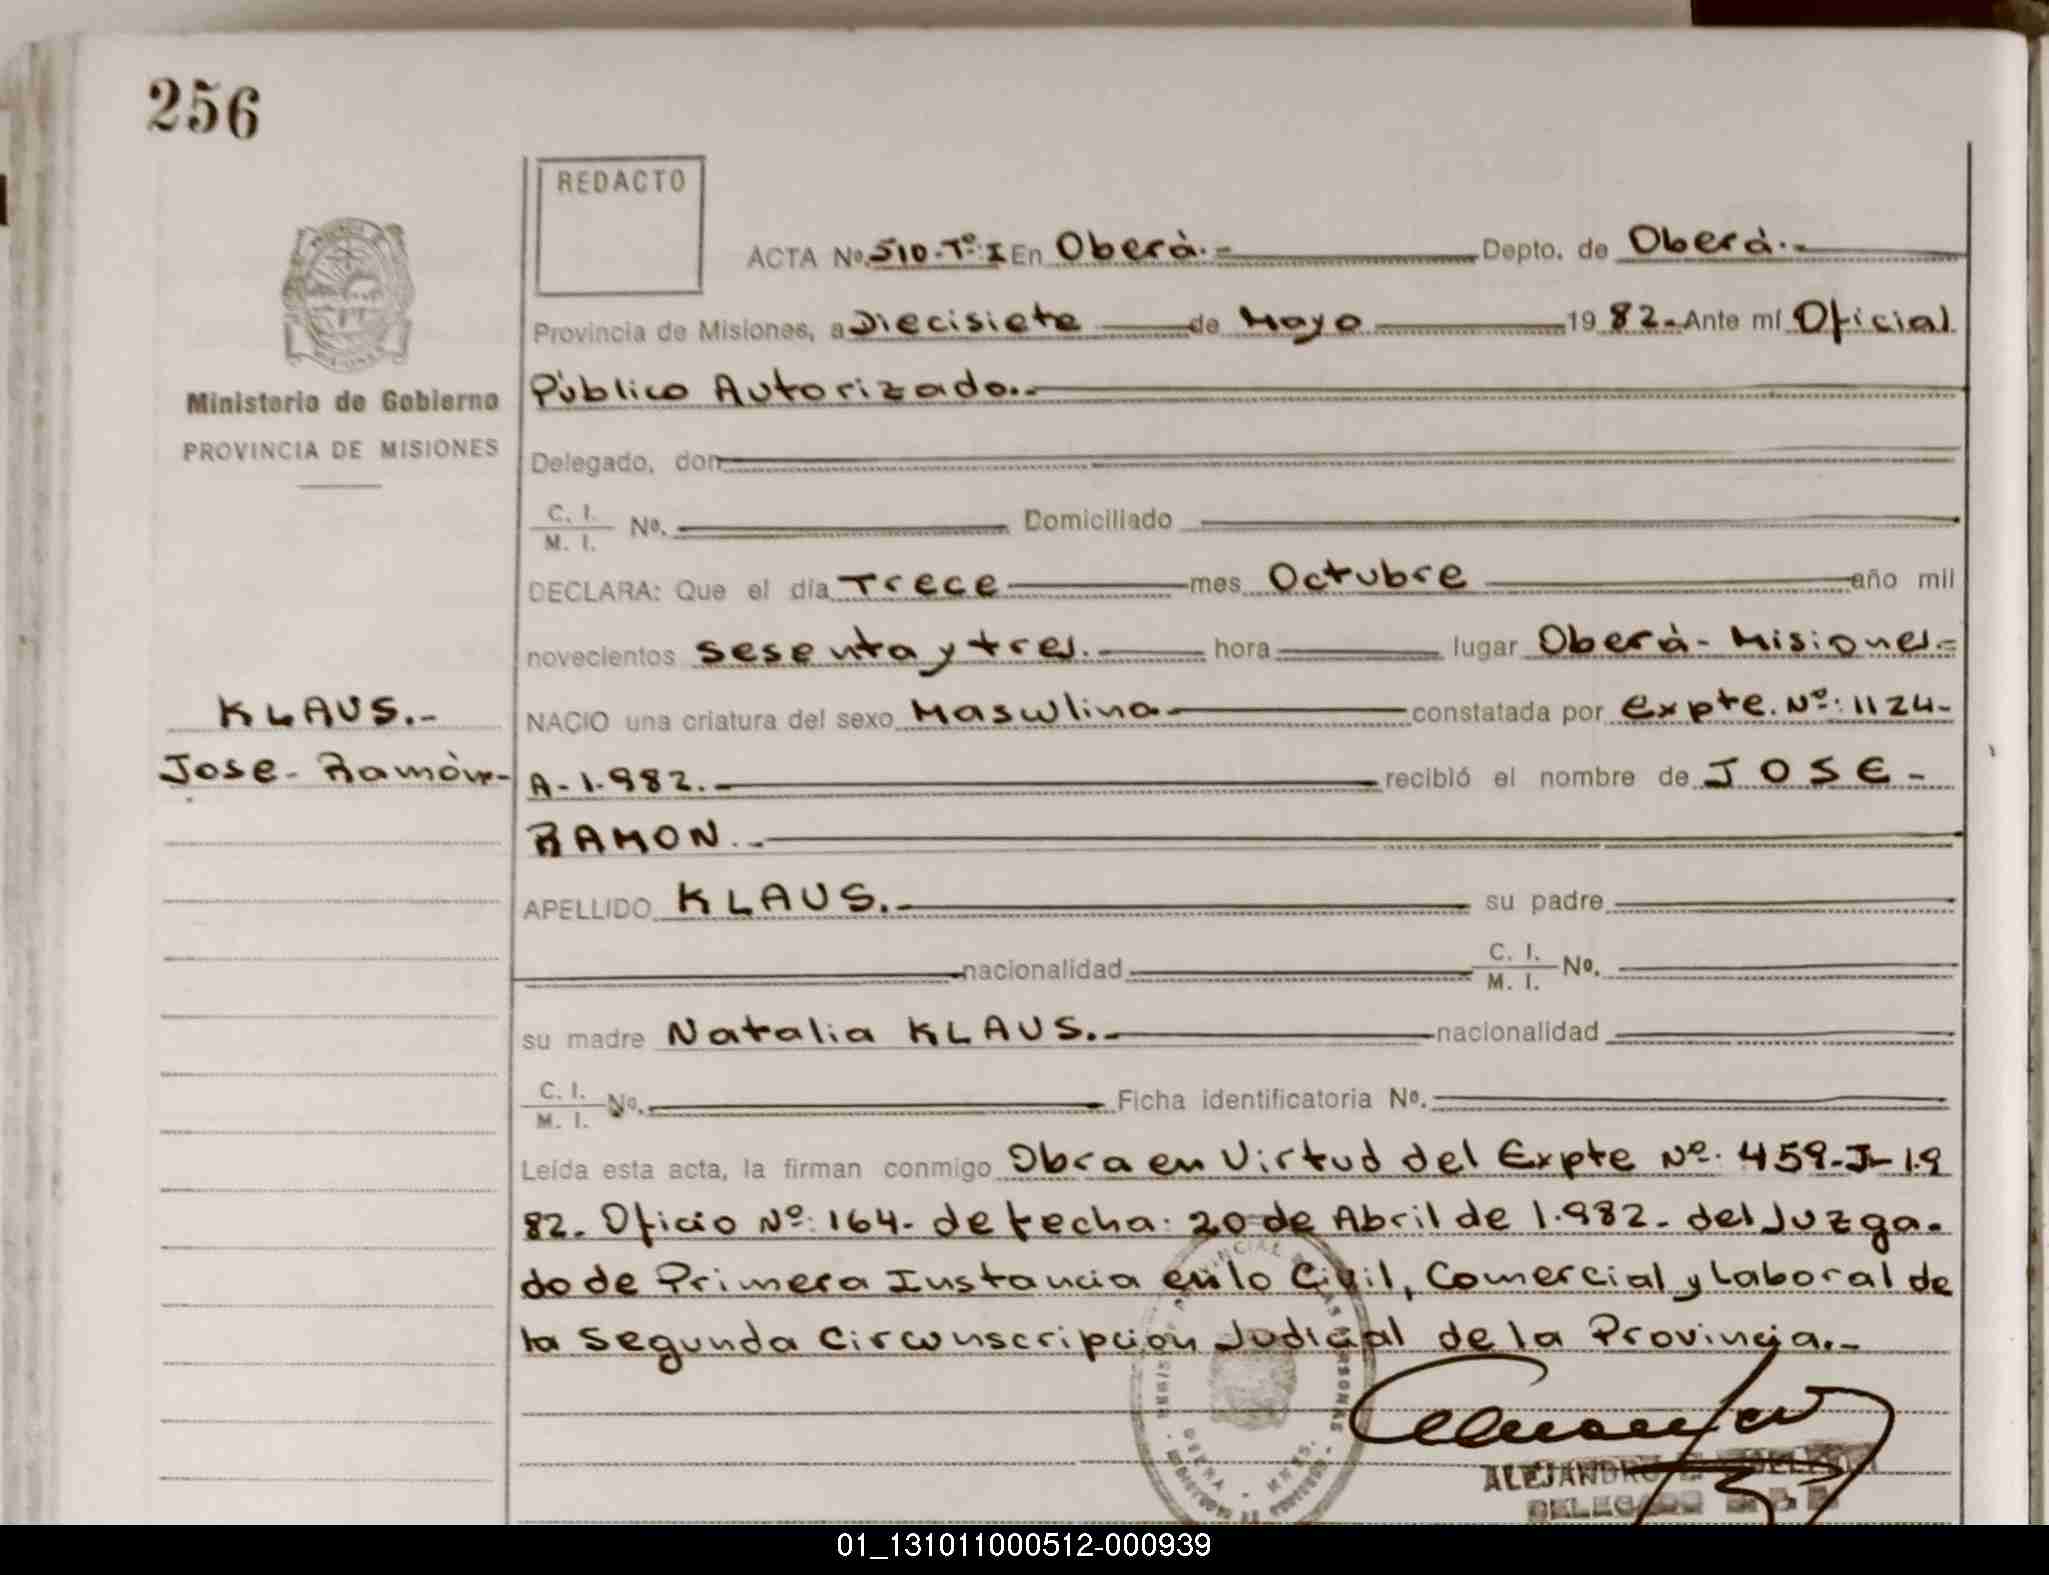 256
REDACTO
ACTA Nº 510-Tº: I En Oberà.- Depto. de Oberá.-
Provincia de Misiones, a Diecisiete de Mayo 1982.- Ante mí Oficial
Público Autorizado.-
Ministerio de Gobierno
PROVINCIA DE MISIONES
Delegado, don
C. I.
M. I. Nº. Domiciliado
DECLARA: Que el día Trece mes Octubre año mil
novecientos sesenta y tres.- hora lugar Oberá- Misiones.=
KLAUS.-
NACIO una criatura del sexo Masculino constatada por Expte. Nº: 1124-
Jose- Ramón-
A-1.982.- recibió el nombre de JOSE-
RAMON.-
APELLIDO KLAUS.- su padre
nacionalidad C. I.
M. I. Nº.
su madre Natalia KLAUS.- nacionalidad
C. I.
M. I. Nº. Ficha identificatoria Nº.
Leída esta acta, la firman conmigo Obra en Virtud del Expte Nº. 459-J-1.9
82. Oficio Nº: 164- de fecha: 20 de Abril de 1.982- del Juzga-
do de Primera Instancia en lo Civil, Comercial y Laboral de
la Segunda Circunscripcion Judicial de la Provincia.-
ALEJANDRO
DELEGADO
01_131011000512-000939